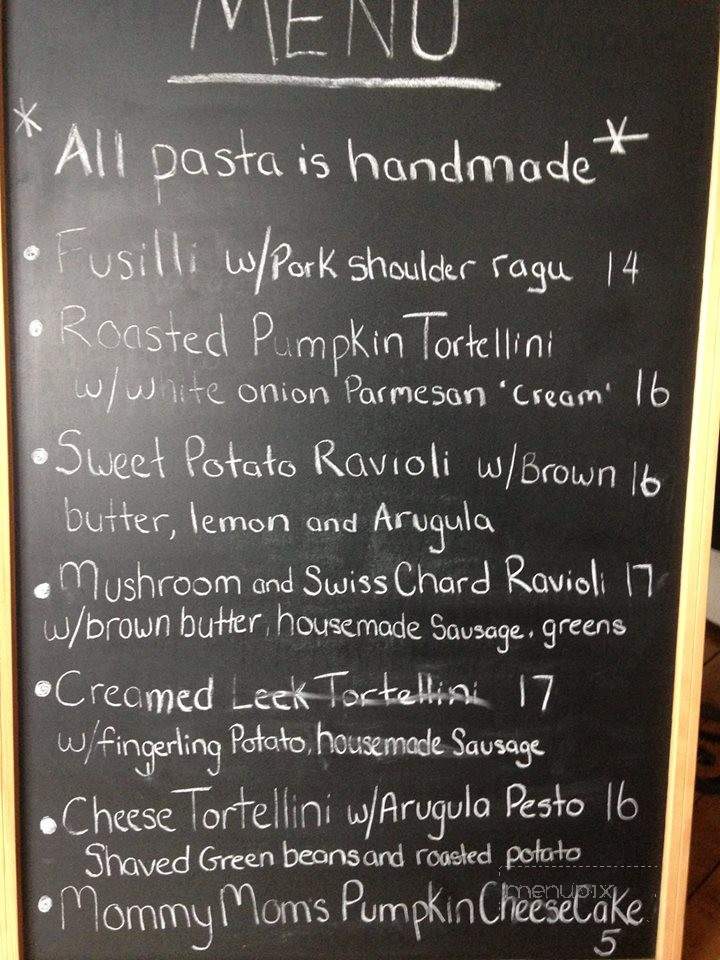 MENU
* All pasta is handmade *
• Fusilli w/Pork shoulder ragu 14
• Roasted Pumpkin Tortellini
w/white onion Parmesan 'cream' 16
• Sweet Potato Ravioli w/Brown 16
butter, lemon and Arugula
• Mushroom and Swiss Chard Ravioli 17
w/brown butter, housemade Sausage, greens
• Creamed Leek Tortellini 17
w/fingerling Potato, housemade Sausage
• Cheese Tortellini w/Arugula Pesto 16
Shaved Green beans and roasted potato
menupix
• Mommy Mom's Pumpkin CheeseCake
5